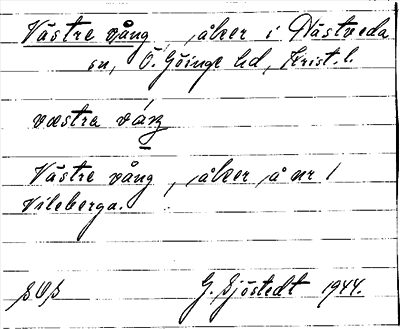 Västre vång, åker i Nästveda
sn, Ö. Göinge hd, Krist. l.
væstra váŋ
Västre vång, åker å nr 1
Vileberga.
SOS
G. Sjöstedt 1944.